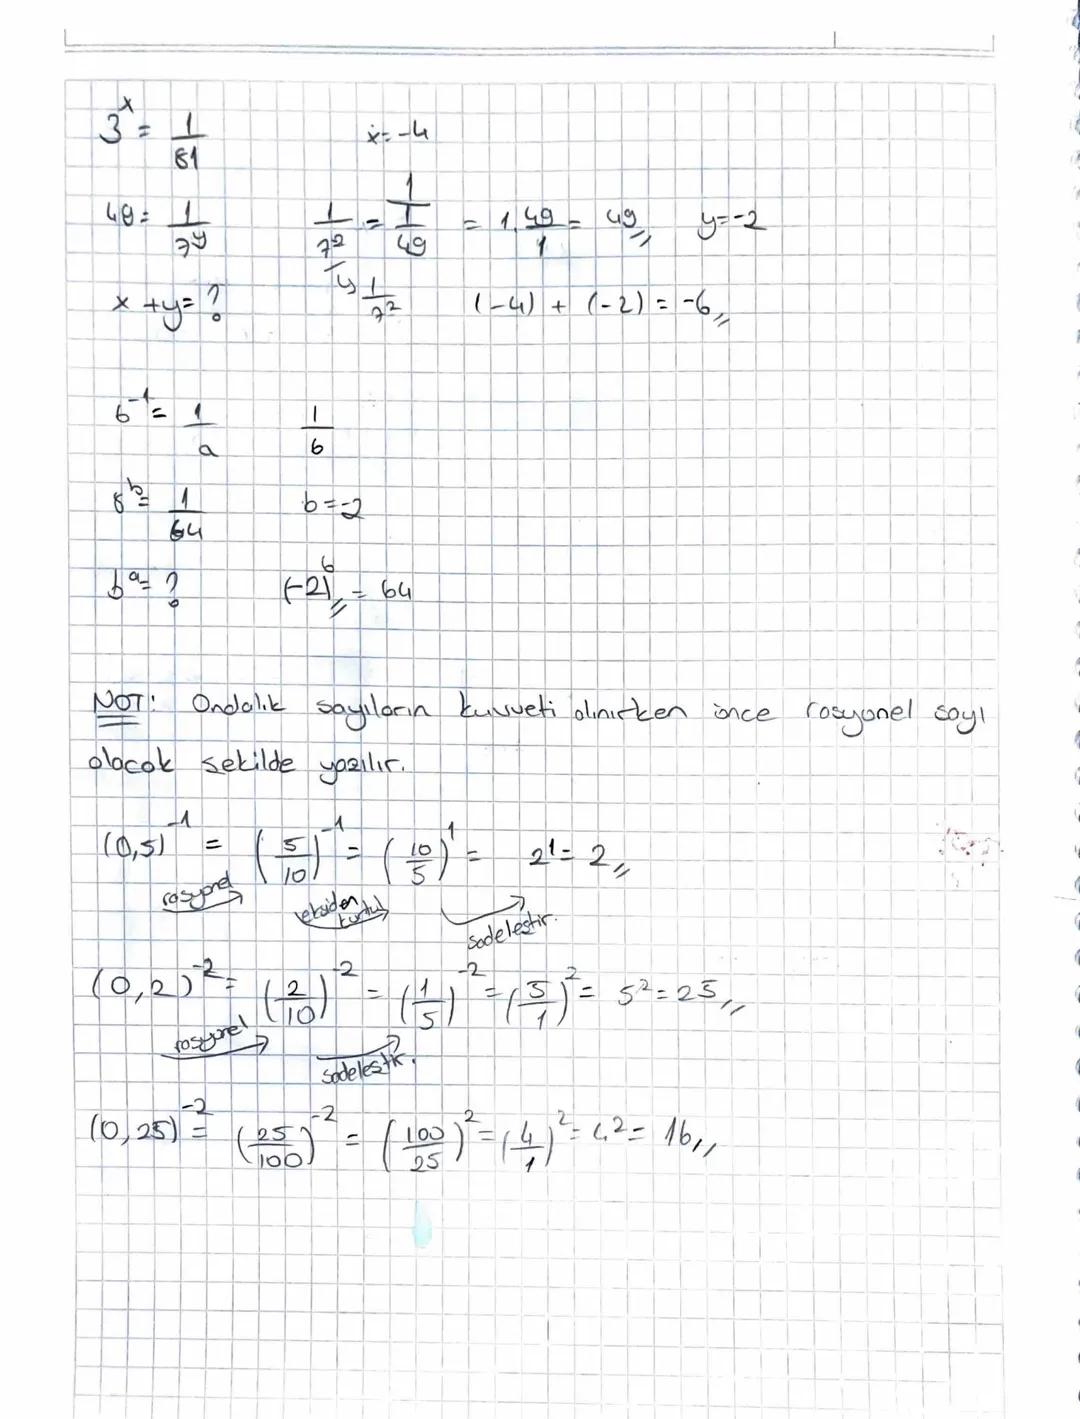 3^x = 1/81 x = -4
49 = 1/7^y 1/7^2 = 1/(1/49) = 1.49/1 = 49 y = -2
x + y = ? 1/7^2 (-4) + (-2) = -6
6^-1 = 1/a 1/6
8^b = 1/64 b = -2
b^a = ? (-2)^6 = 64
NOT: Ondalık sayıların kuvveti alınırken önce rasyonel sayı
olacak şekilde yazılır.
(0,5)^-1 = (5/10)^-1 = (10/5)^1 = 2^1 = 2
rasyonel eksiden kurtul sadeleştir.
(0,2)^-2 = (2/10)^-2 = (1/5)^-2 = (5/1)^2 = 5^2 = 25
rasyonel sadeleştir.
(0,25)^-2 = (25/100)^-2 = (100/25)^2 = (4/1)^2 = 4^2 = 16